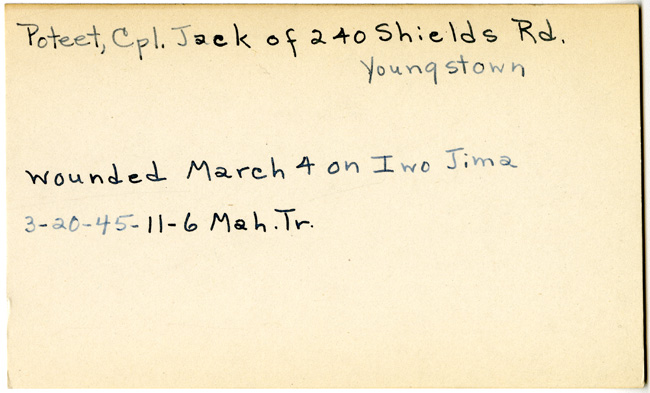 Poteet, Cpl. Jack of 240 Shields Rd.
Youngstown
wounded March 4 on Iwo Jima
3-20-45-11-6 Mah. Tr.